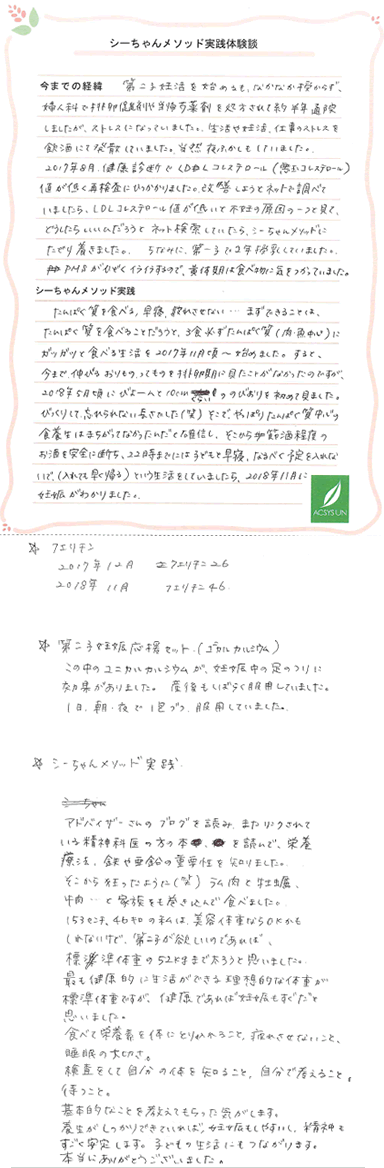 シーちゃんメソッド実践体験談
今までの経緯 第二子妊活を始めるも、なかなか授からず、
婦人科で排卵促進剤や当帰芍薬剤を処方されて約半年通院
しましたが、ストレスになっていました。生活や妊活、仕事のストレスを
飲酒にて発散していました。当然夜ふかしもしていました。
2017年8月、健康診断でLDLコレステロール(悪玉コレステロール)
値が低く再検査にひっかかりました。改善しようとネットで調べて
いましたら、LDLコレステロール値が低いと不妊の原因の一つと見て、
どうしたらいいんだろうとネット検索していたら、シーちゃんメソッドに
たどり着きました。ちなみに、第一子で2年授乳していました。
PMSがひどくイライラするので、黄体期は食べ物に気をつかっていました。
シーちゃんメソッド実践
たんぱく質を食べる、早寝、疲れさせない… まずできることは、
たんぱく質を食べることだろうと、3食必ずたんぱく質(肉・魚中心)に
ガッツリと食べる生活を2017年11月頃〜始めました。すると、
今まで、伸びるおりものってものを排卵期に見たことがなかったのですが、
2018年5月頃にびよーんと10cmくらいののびおりを初めて見ました。
びっくりして、忘れられない長さでした(笑) そこで、やっぱりたんぱく質中心の
食養生はまちがってなかったんだくな確信し、そこから節酒程度の
お酒を完全に断ち、22時までには子どもと早寝、なるべく予定を入れな
いで、(入れても早く帰る)という生活をしていましたら、2018年11月に
妊娠がわかりました。
ACSYS UN
☆ フェリチン
2017年12月 フェリチン26
2018年11月 フェリチン46.
☆ 第二子妊娠応援セット.(ユニカルカルシウム)
この中のユニカルカルシウムが、妊娠中の足のつりに
効果がありました。産後もしばらく服用していました。
1日、朝・夜で1包づつ服用していました。
☆ シーちゃんメソッド実践.
アドバイザーさんのブログを読み、またリンクされて
いる精神科医の方の本を読んで、栄養
療法、鉄や亜鉛の重要性を知りました。
そこから狂ったように(笑) ラム肉と牡蠣、
牛肉…と家族をも巻き込んで食べました。
153センチ、46キロの私は、美容体重ならOKかも
しれないけど、第二子が欲しいのであれば、
標準体重の52キロまで太ろうと思いました。
最も健康的に生活ができる理想的な体重が
標準体重ですが、健康であれば妊娠もすぐだと
思いました。
食べて栄養素を体にとり入れること、疲れさせないこと、
睡眠の大切さ。
検査をして自分の体を知ること、自分で考えること、
待つこと。
基本的なことを教えてもらった気がします。
養生がしっかりできていれば、妊娠もしやすいし、精神も
すごく安定します。子どもの生活にもつながります。
本当にありがとうございました。